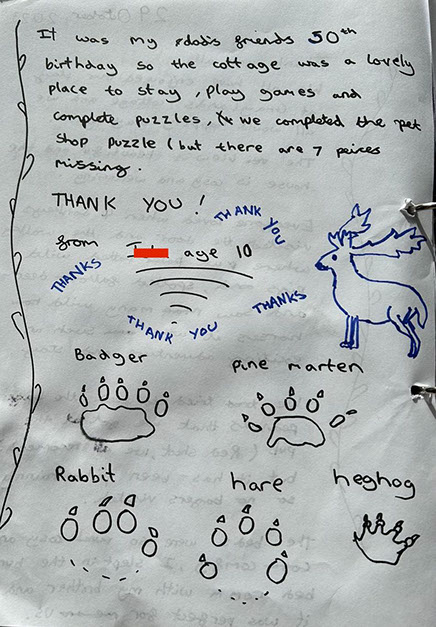 It was my dad's friends 50th
birthday so the cottage was a lovely
place to stay, play games and
complete puzzles, we completed the pet
shop puzzle (but there are 7 peices
missing.
THANK YOU!
THANK YOU
from age 10
THANKS
THANKS
THANK YOU
Badger
pine marten
Rabbit
hare
heghog